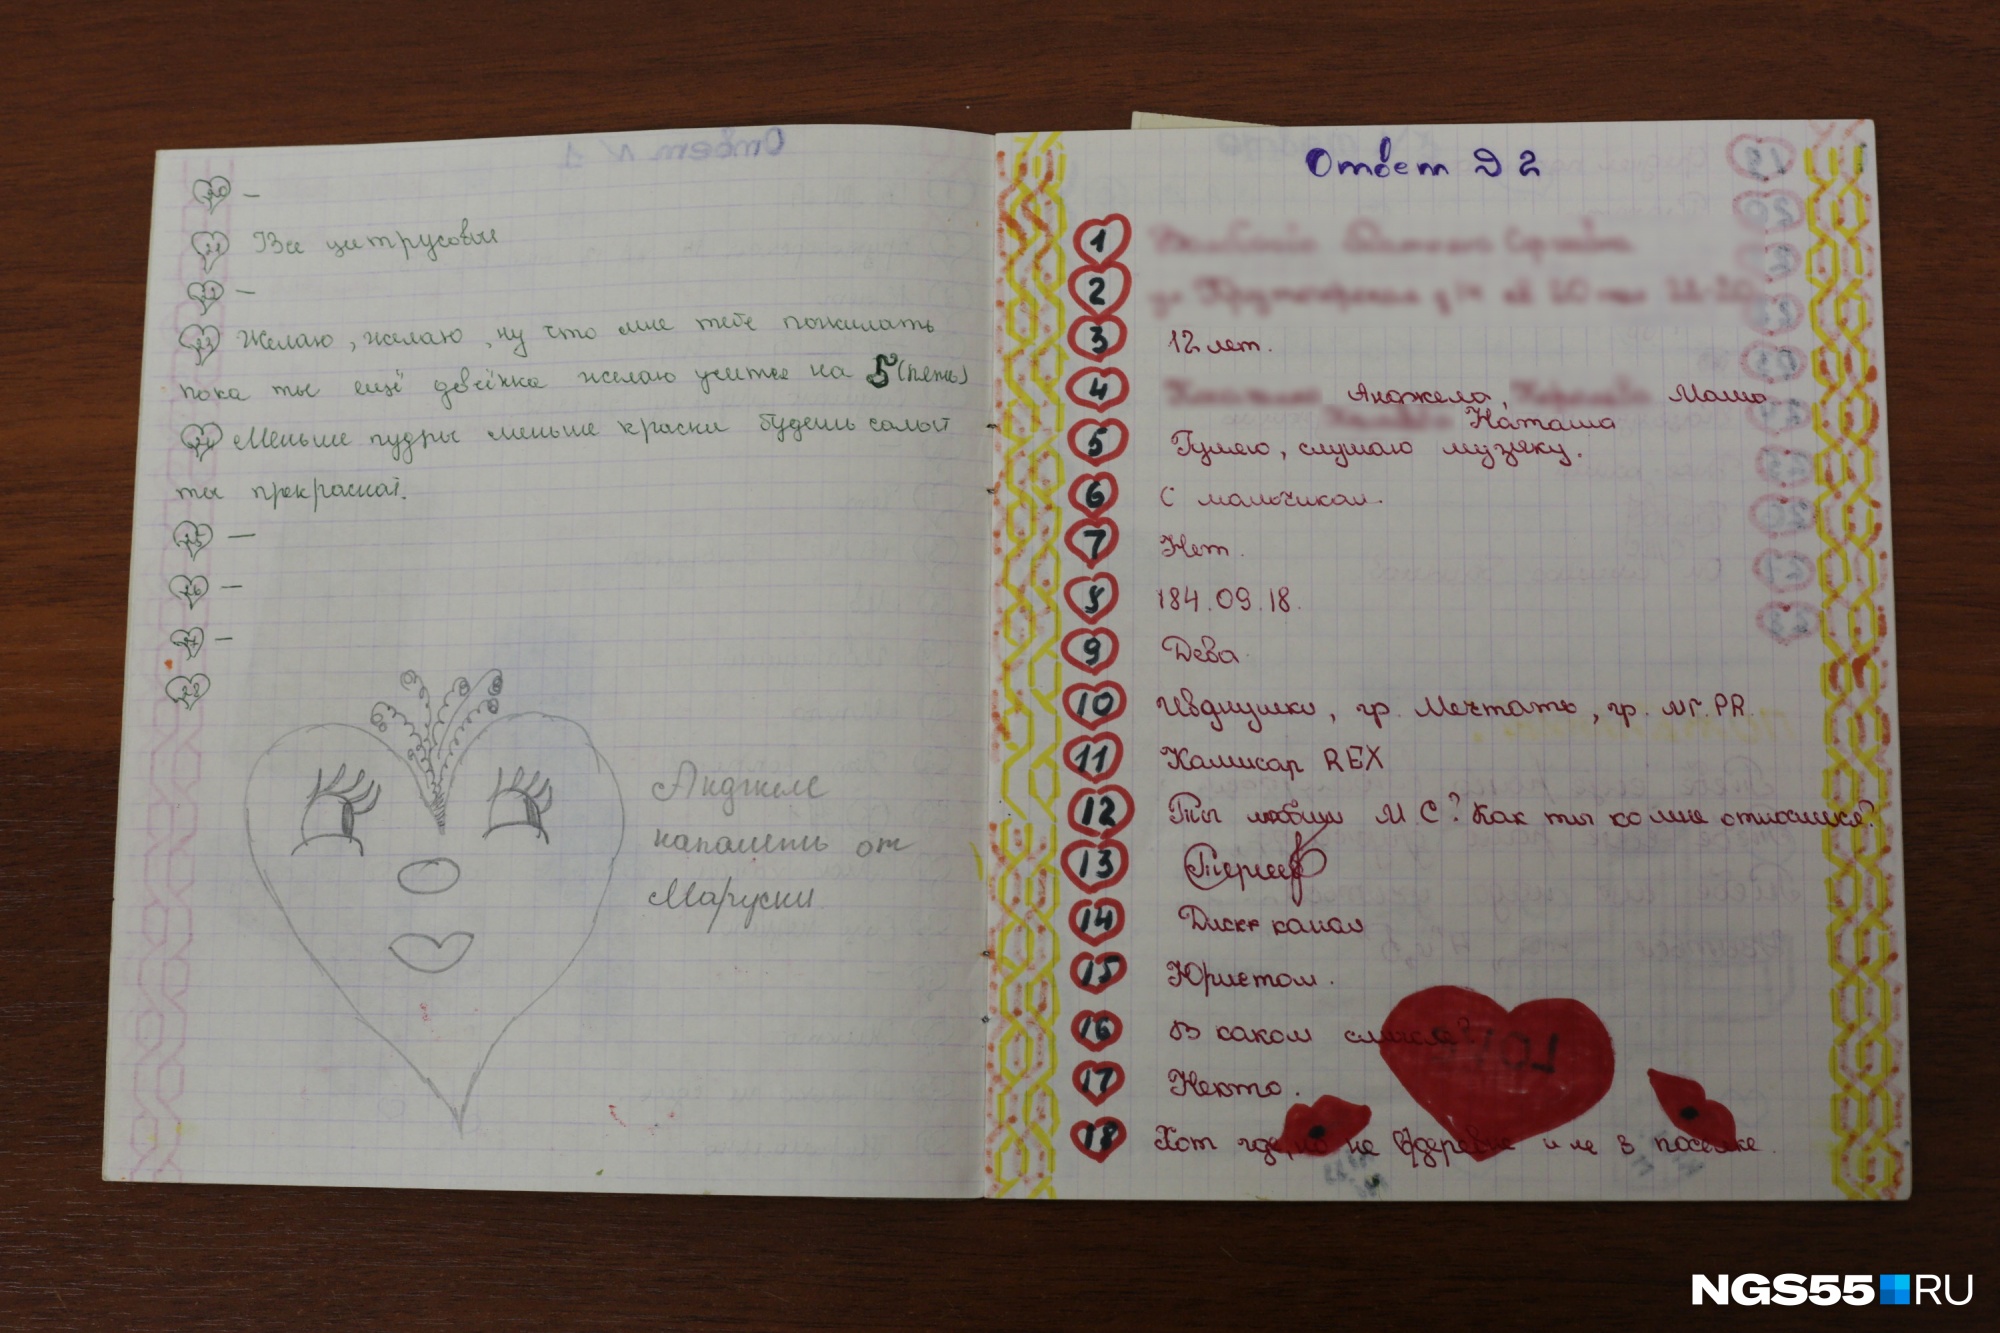 20 –
21 Все цитрусовые
22 –
23 Желаю, желаю, ну что мне тебе пожилать
пока ты ещё девчёнка желаю учитсе на 5 (пять)
24 Меньше пудры меньше краски будешь самой
ты прекрасной.
25 –
26 –
27 –
28
Анджеле
на память от
Маруськи
Ответ № 2
1
2
3 12 лет.
4 Анджела, Маша
Наташа
5 Гуляю, слушаю музыку.
6 С мальчикам.
7 Нет.
8 184.09.18.
9 Дева
10 Ивдиушки, гр. Мечтать, гр. МГ.PR.
11 Камисар REX
12 Ты любиш М С? Как ты ко мне относишся?
13
14 Диск канал
15 Юристом.
16 В каком смысле?
17 Некто.
18 Хот где, но не в деревне и не в поселке.
LOVE
NGS55 RU